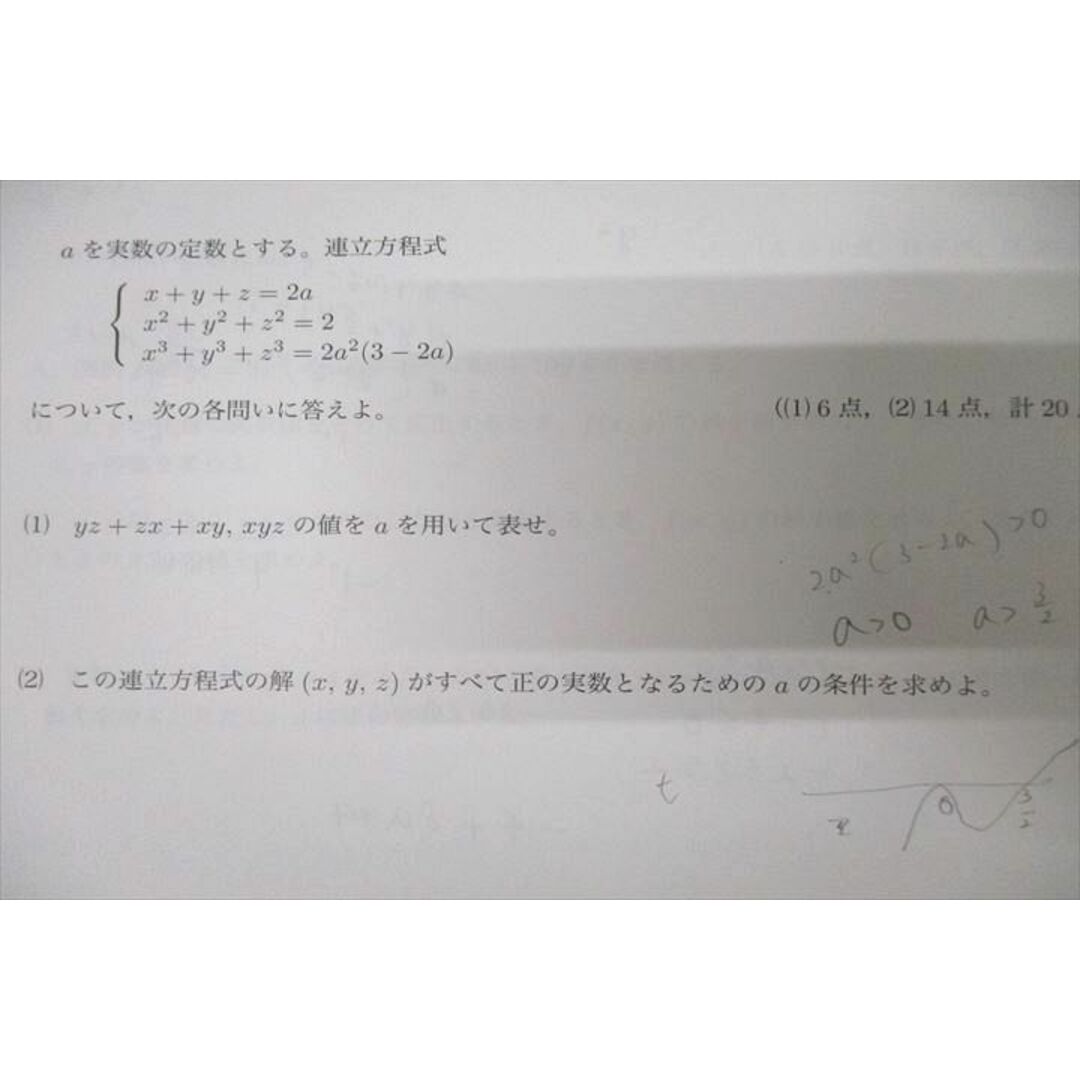 aを実数の定数とする。連立方程式
x + y + z = 2a
x² + y² + z² = 2
x³ + y³ + z³ = 2a²(3 − 2a)
について，次の各問いに答えよ。 ((1) 6 点，(2) 14 点，計 20
(1) yz + zx + xy, xyz の値を a を用いて表せ。
2a²(3−2a)>0
a>0 a>3/2
(2) この連立方程式の解 (x, y, z) がすべて正の実数となるための a の条件を求めよ。
t
0 3/2